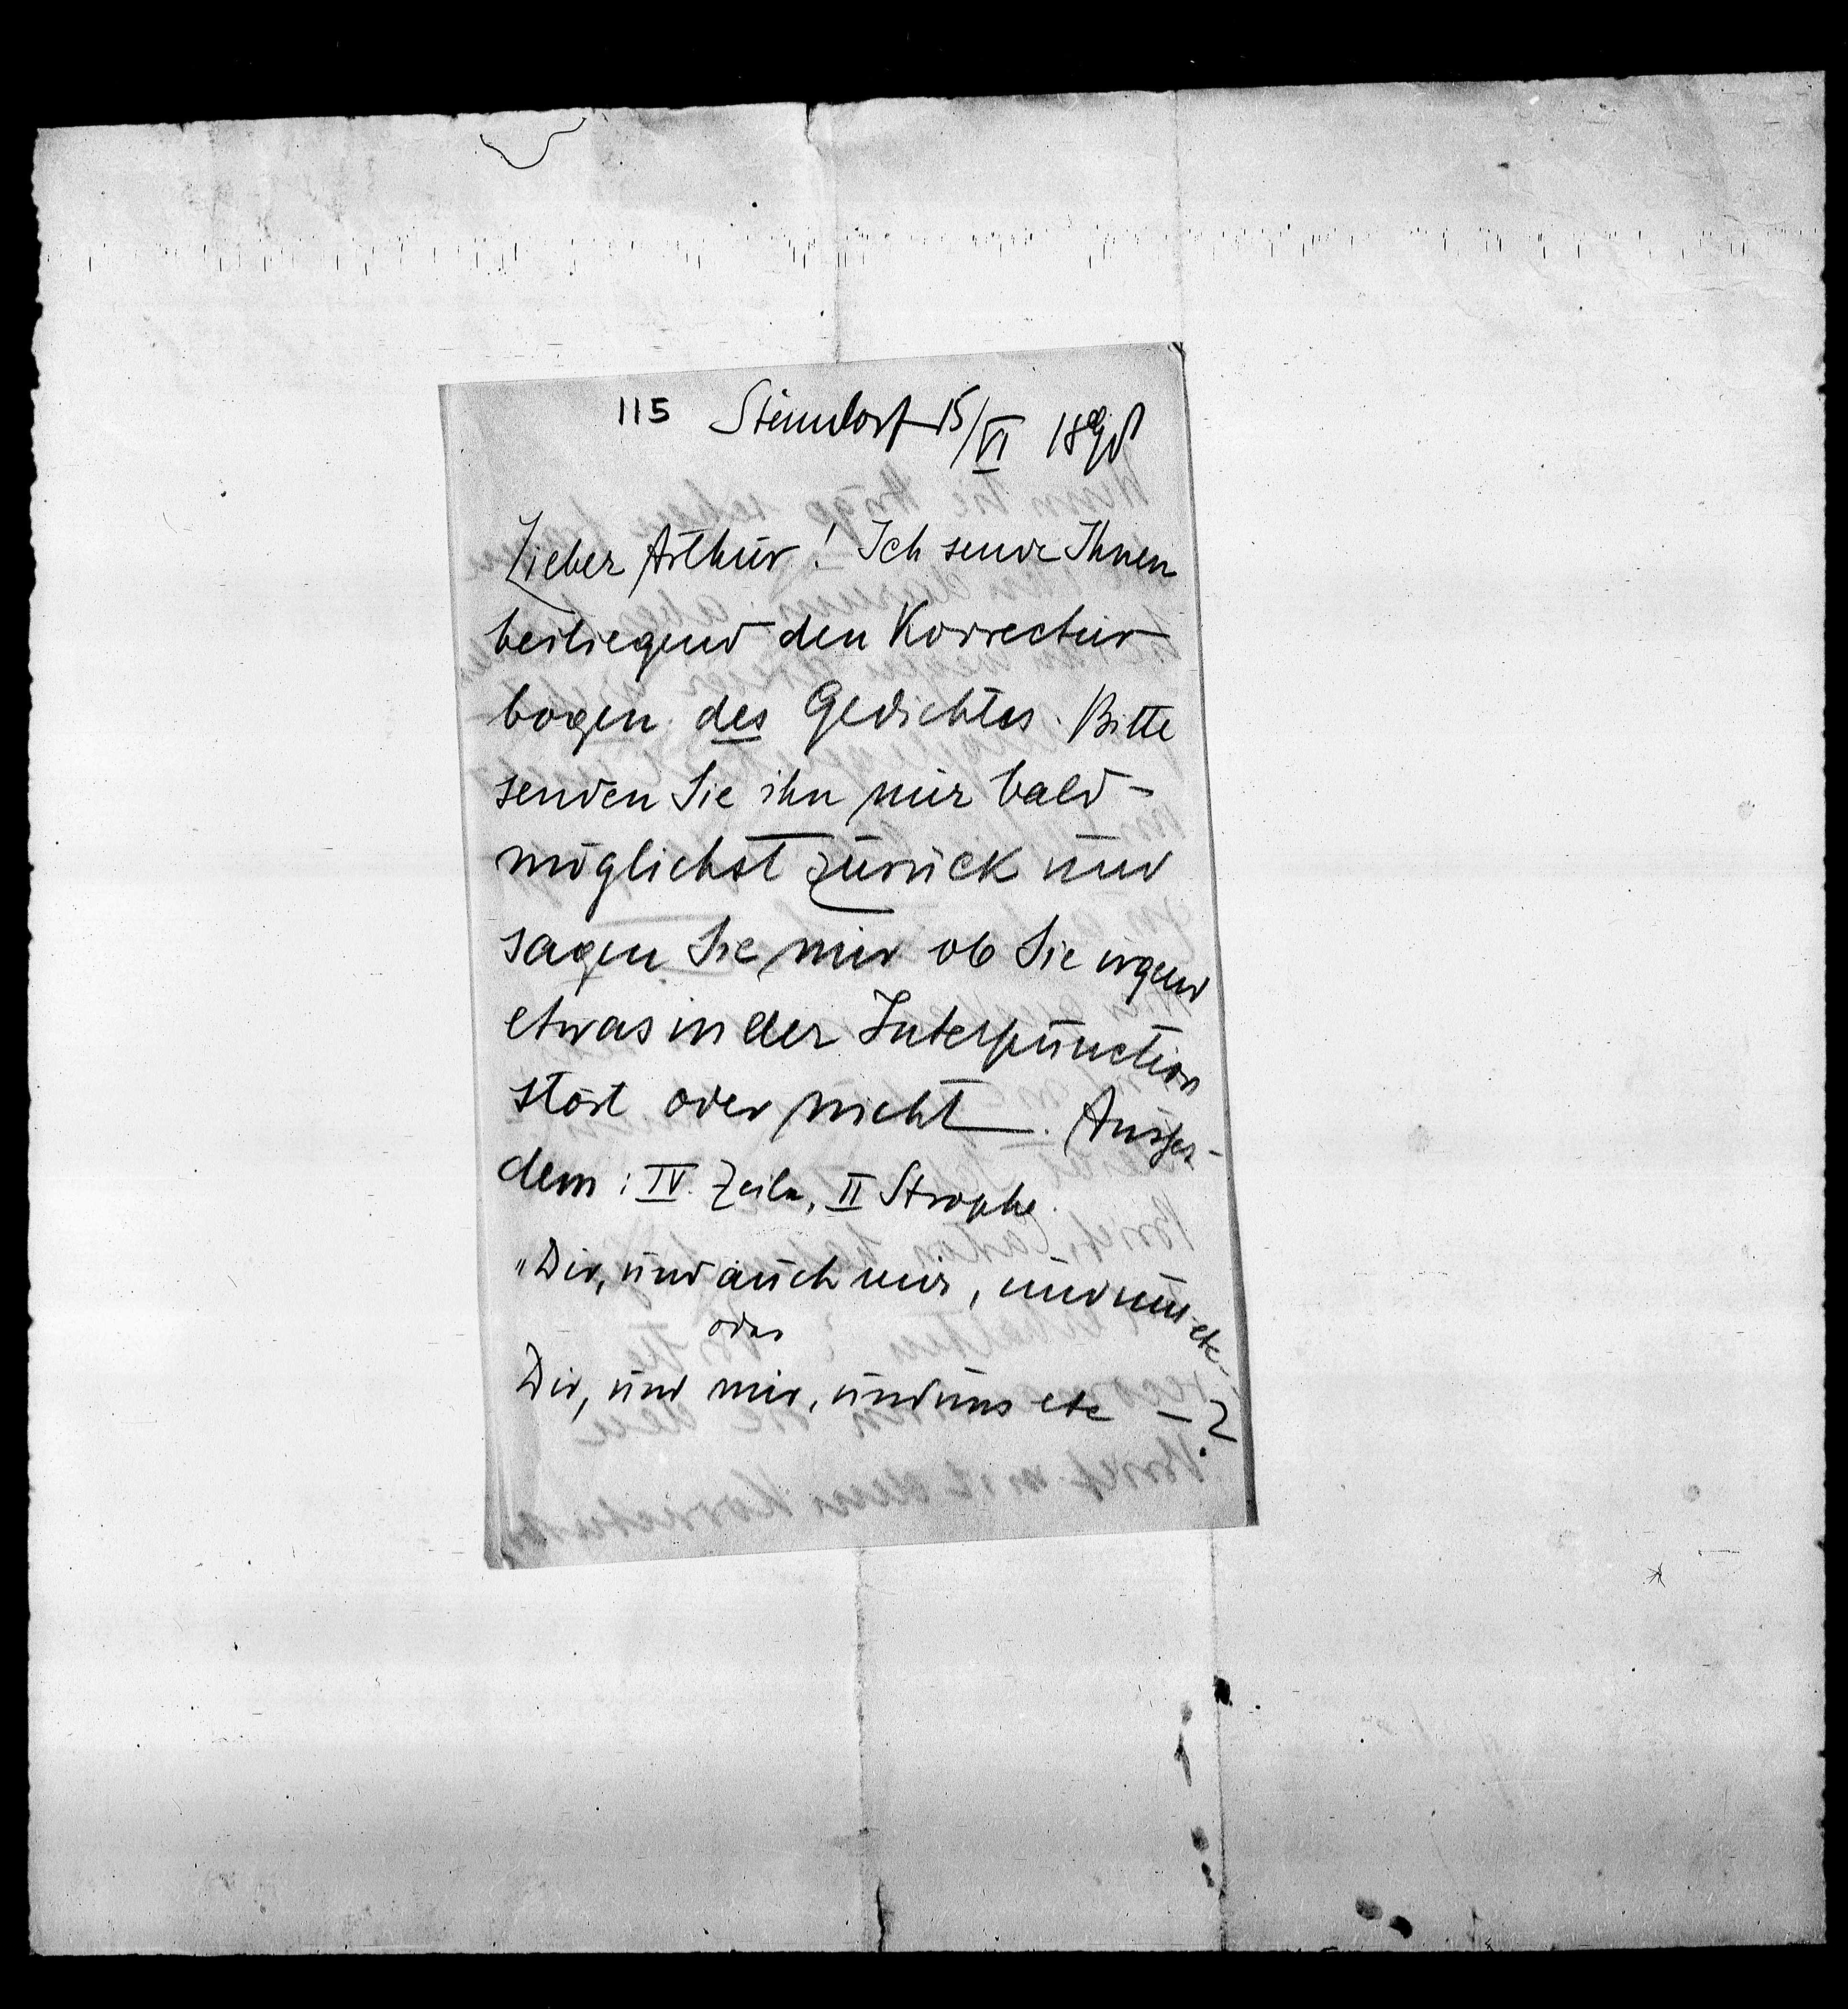 115 Steindorf 15/VI 1898
Lieber Arthur! Ich sende Ihnen
beiliegend den Korrectur
bogen des Gedichtes. Bitte
senden Sie ihn mir bald-
möglichst zurück und
sagen Sie mir ob Sie irgend
etwas in der Interpunction
stört oder nicht. Ausser-
dem: IV. Zeile, II Strophe.
"Dir, und auch mir, und uns etc
oder
Dir, und mir, und uns etc – ?